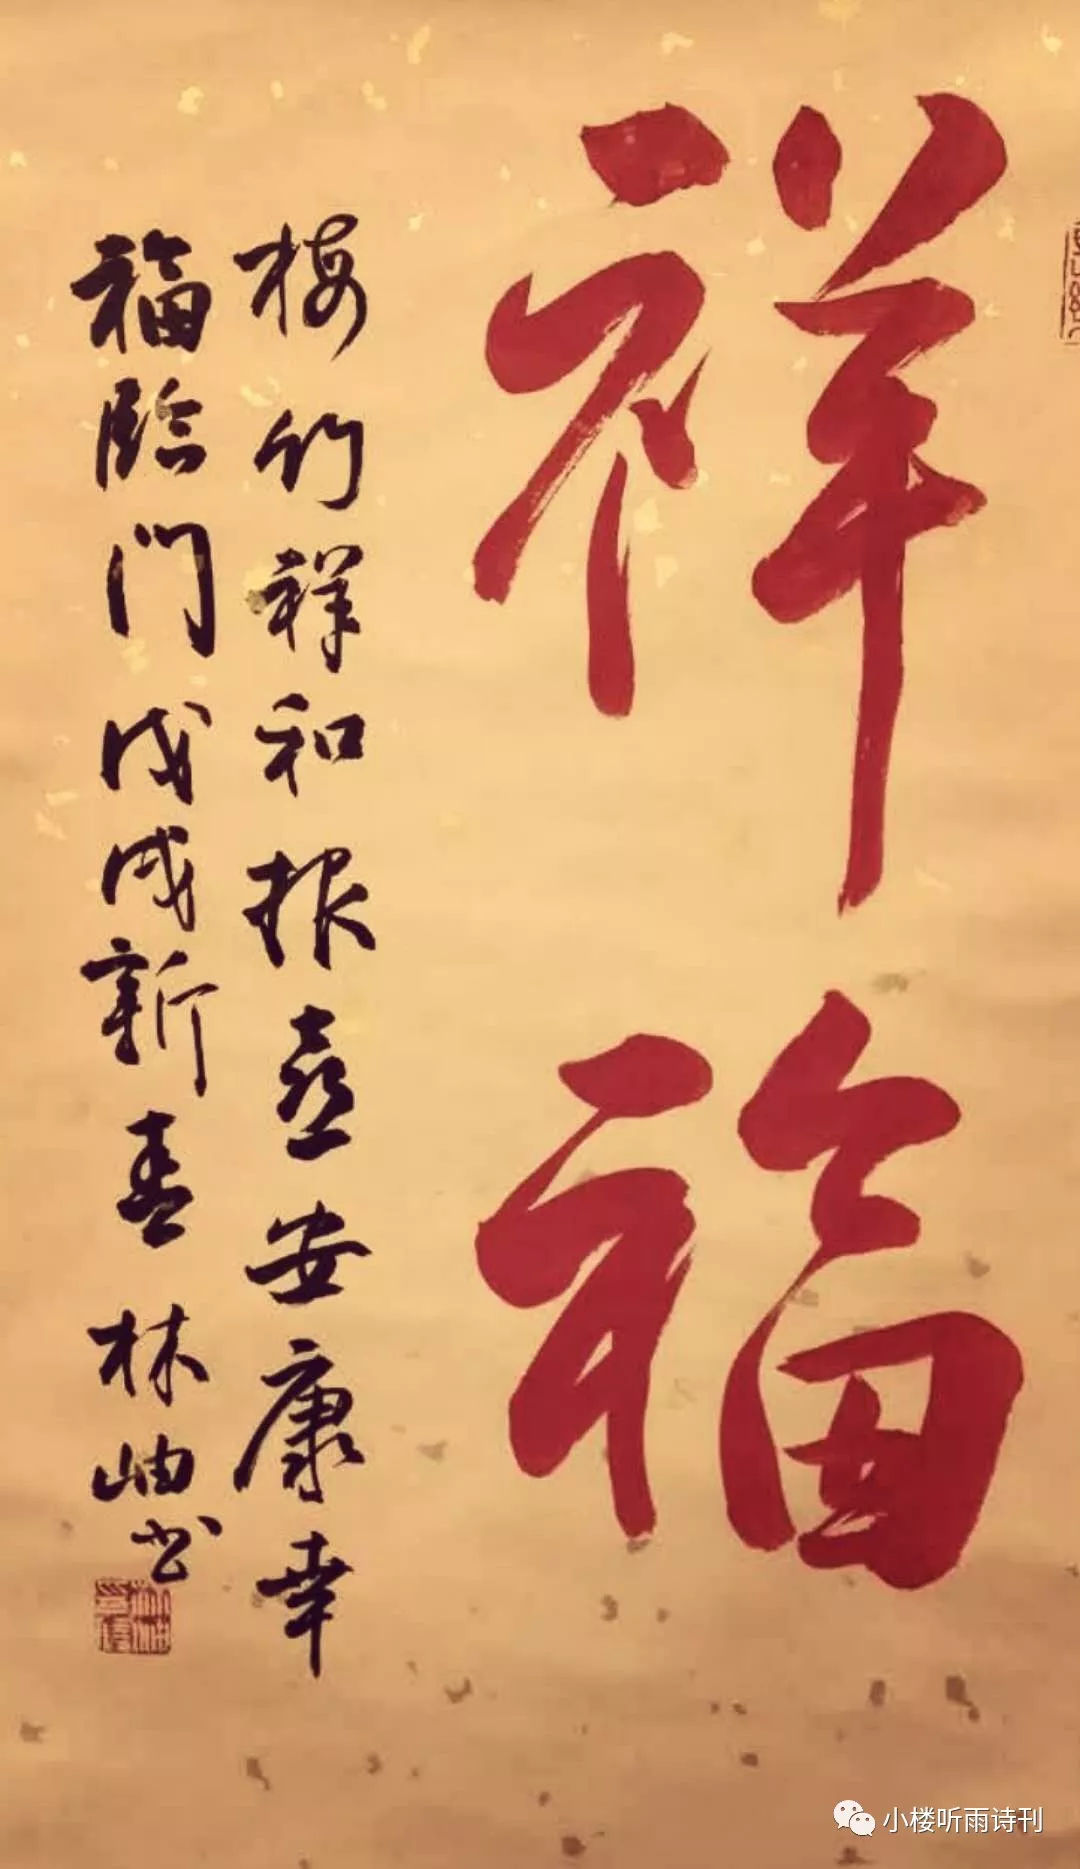 祥福
梅竹祥和报喜安康幸
福临门戊戌新春 林岫书
小楼听雨诗刊